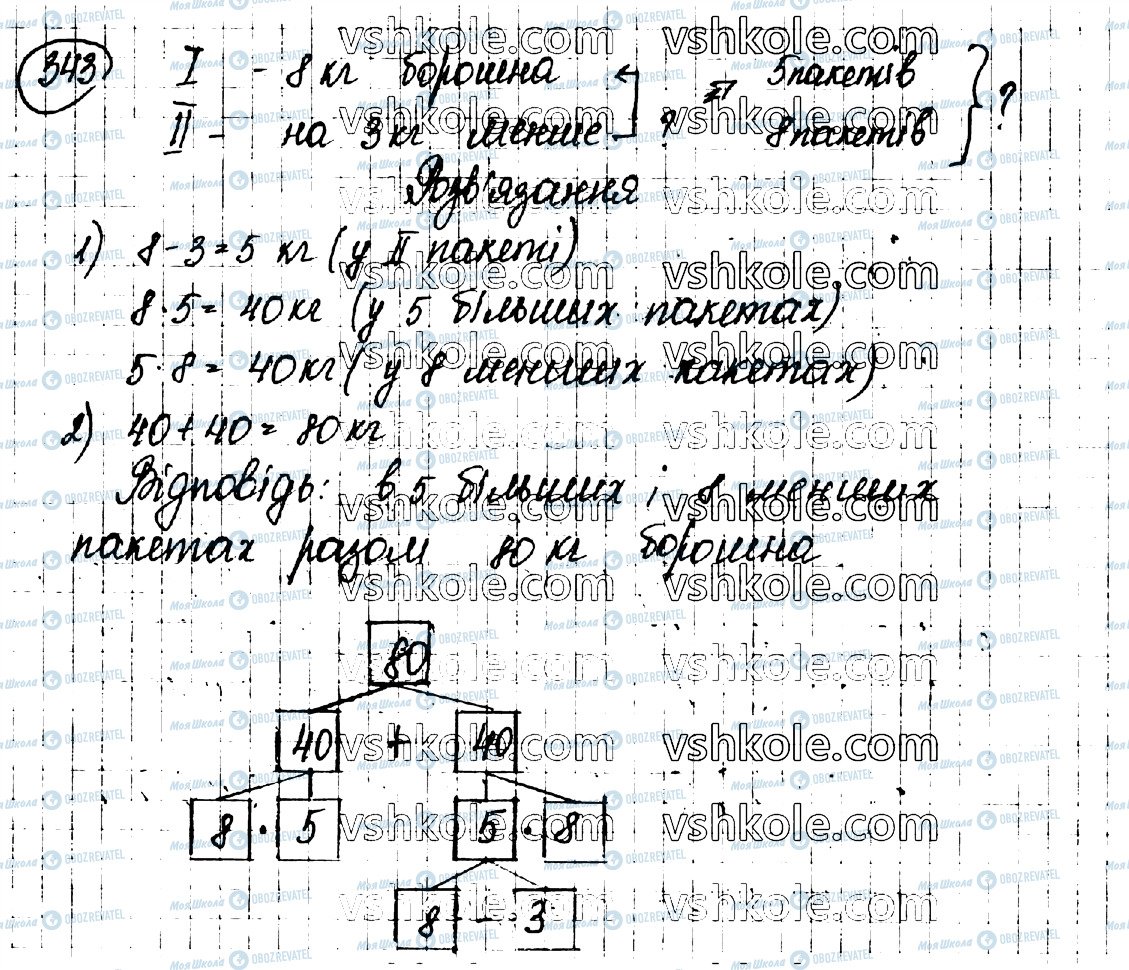 343
I - 8 кг борошна 5 пакетів
II - на 3 кг менше ? 8 пакетів ?
Розв'язання
1) 8 - 3 = 5 кг (у II пакеті)
8 · 5 = 40 кг (у 5 більших пакетах)
5 · 8 = 40 кг (у 8 менших пакетах)
2) 40 + 40 = 80 кг
Відповідь: в 5 більших і 8 менших
пакетах разом 80 кг борошна
80
40 + 40
8 · 5 5 · 8
8 - 3
vshkole.com
Моя Школа OBOZREVATEL